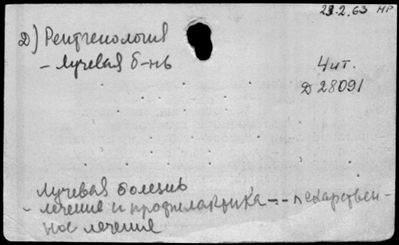 23.2.63 НР
Д) Рентгенология
- лучевая б-нь
4 ит.
Д 28091
лучевая болезнь
- лечение и профилактика -- лекарствен-
ное лечение